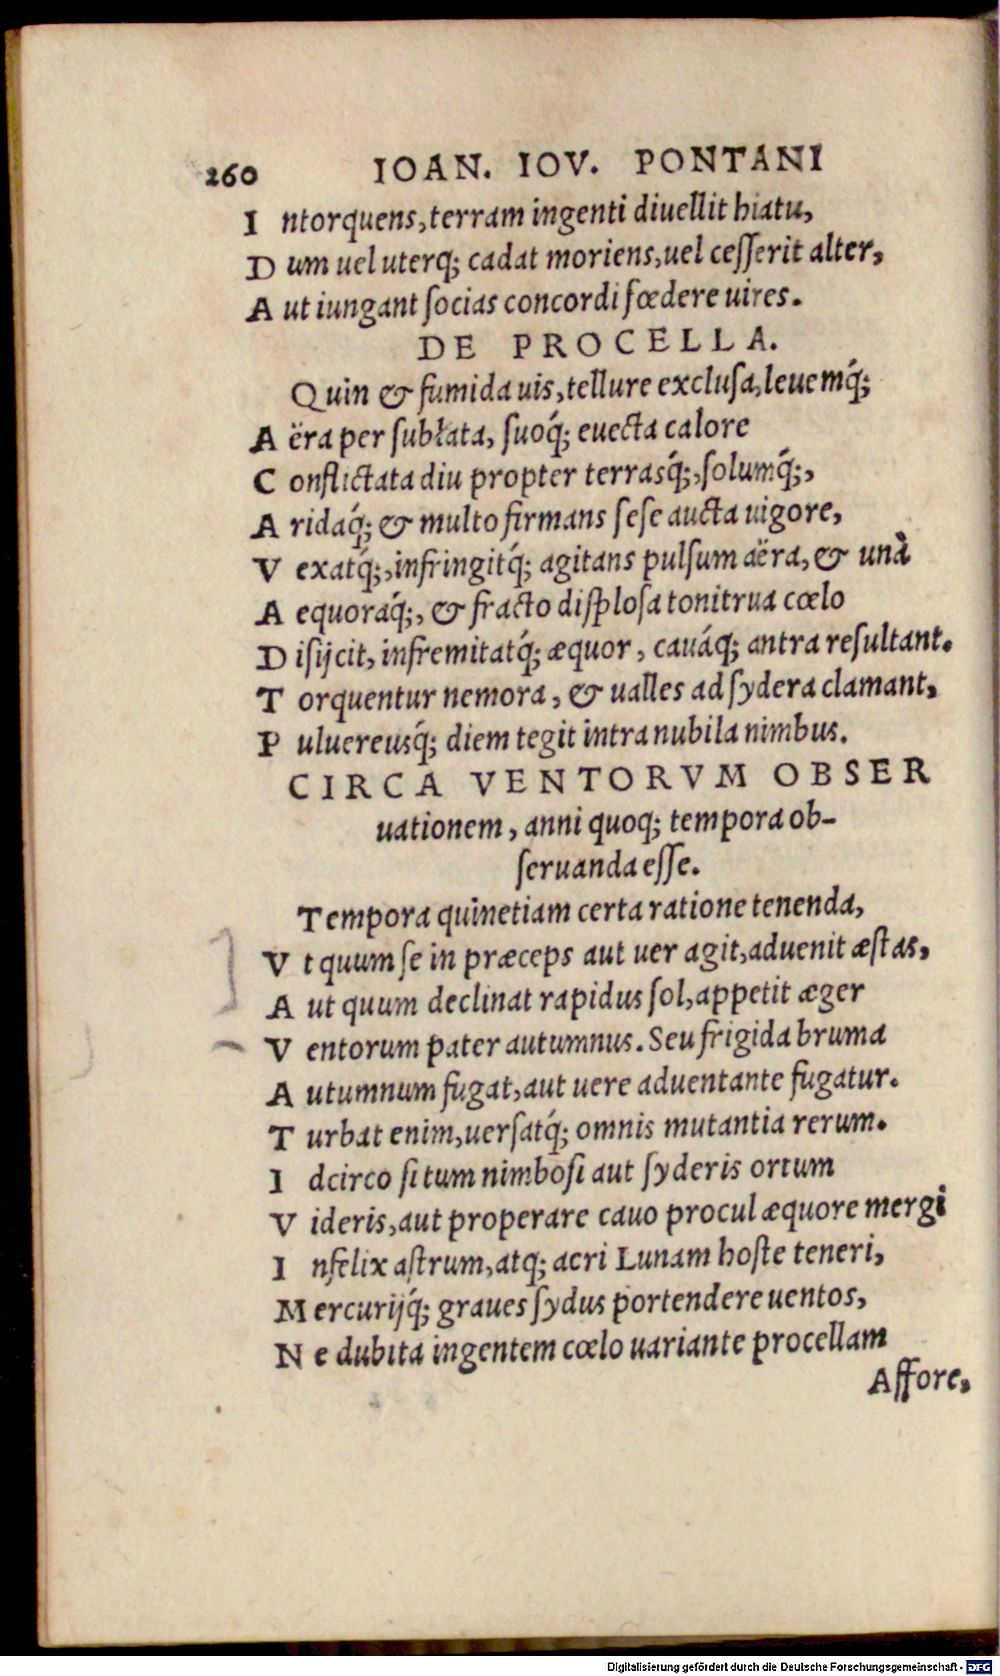 260 IOAN. IOV. PONTANI
I ntorquens, terram ingenti diuellit hiatu,
D um uel uterq; cadat moriens, uel cesserit alter,
A ut iungant socias concordi fœdere uires.
DE PROCELLA.
Quin & fumida uis, tellure exclusa, leuemq́;
A ëra per subłata, suoq́; euecta calore
C onflictata diu propter terrasq́;, solumq́;,
A ridaq́; & multo firmans sese aucta uigore,
V exatq́;, infringitq́; agitans pulsum aëra, & unà
A equoraq́;, & fracto displosa tonitrua cœlo
D isijcit, infremitatq́; æquor, cauáq; antra resultant.
T orquentur nemora, & ualles ad sydera clamant,
P uluereusq́; diem tegit intra nubila nimbus.
CIRCA VENTORVM OBSER
uationem, anni quoq; tempora ob-
seruanda esse.
Tempora quinetiam certa ratione tenenda,
V t quum se in præceps aut uer agit, aduenit æstas,
A ut quum declinat rapidus sol, appetit æger
V entorum pater autumnus. Seu frigida bruma
A utumnum fugat, aut uere aduentante fugatur.
T urbat enim, uersatq́; omnis mutantia rerum.
I dcirco si tum nimbosi aut syderis ortum
V ideris, aut properare cauo procul æquore mergi
I nfelix astrum, atq; acri Lunam hoste teneri,
M ercurijq́; graues sydus portendere uentos,
N e dubita ingentem cœlo uariante procellam
Affore,
Digitalisierung gefördert durch die Deutsche Forschungsgemeinschaft - DFG